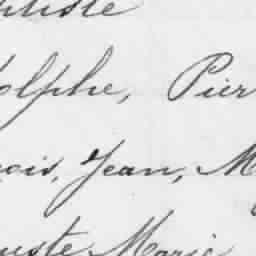 ptiste
dolphe, Pier
çois, Jean, M
guste Marie